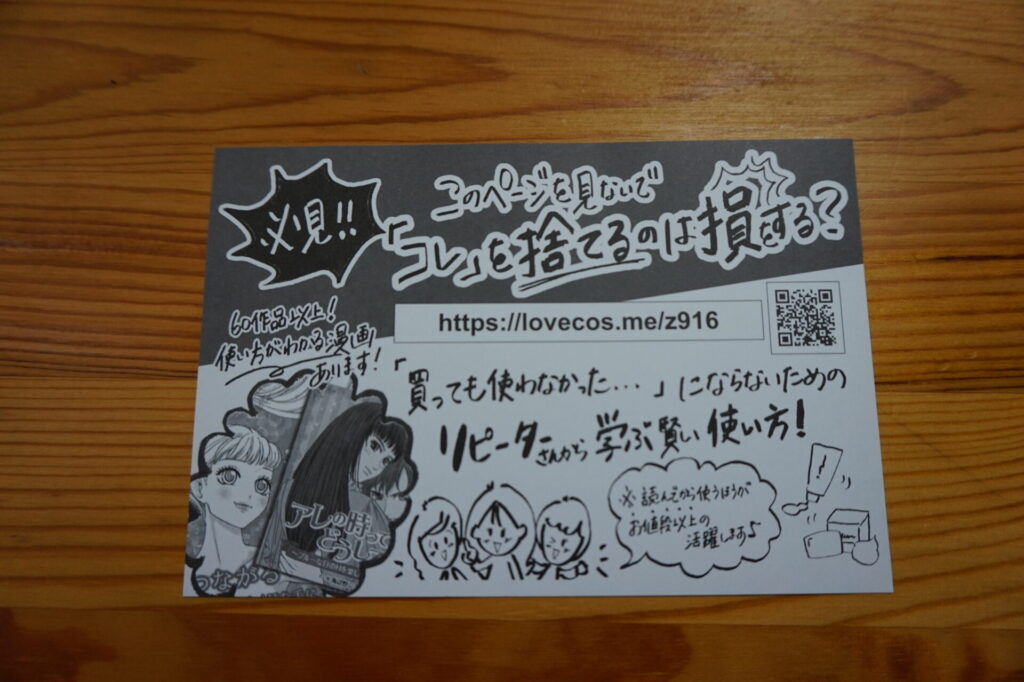 必見!!
このページを見ないで
「コレ」を捨てるのは損をする?
https://lovecos.me/z916
60作品以上!
使い方がわかる漫画
あります!
「買っても使わなかった...」にならないための
リピーターさんから学ぶ賢い使い方!
※読んでから使うほうが
お値段以上の
活躍します♪
アレの時
どうして
つながる